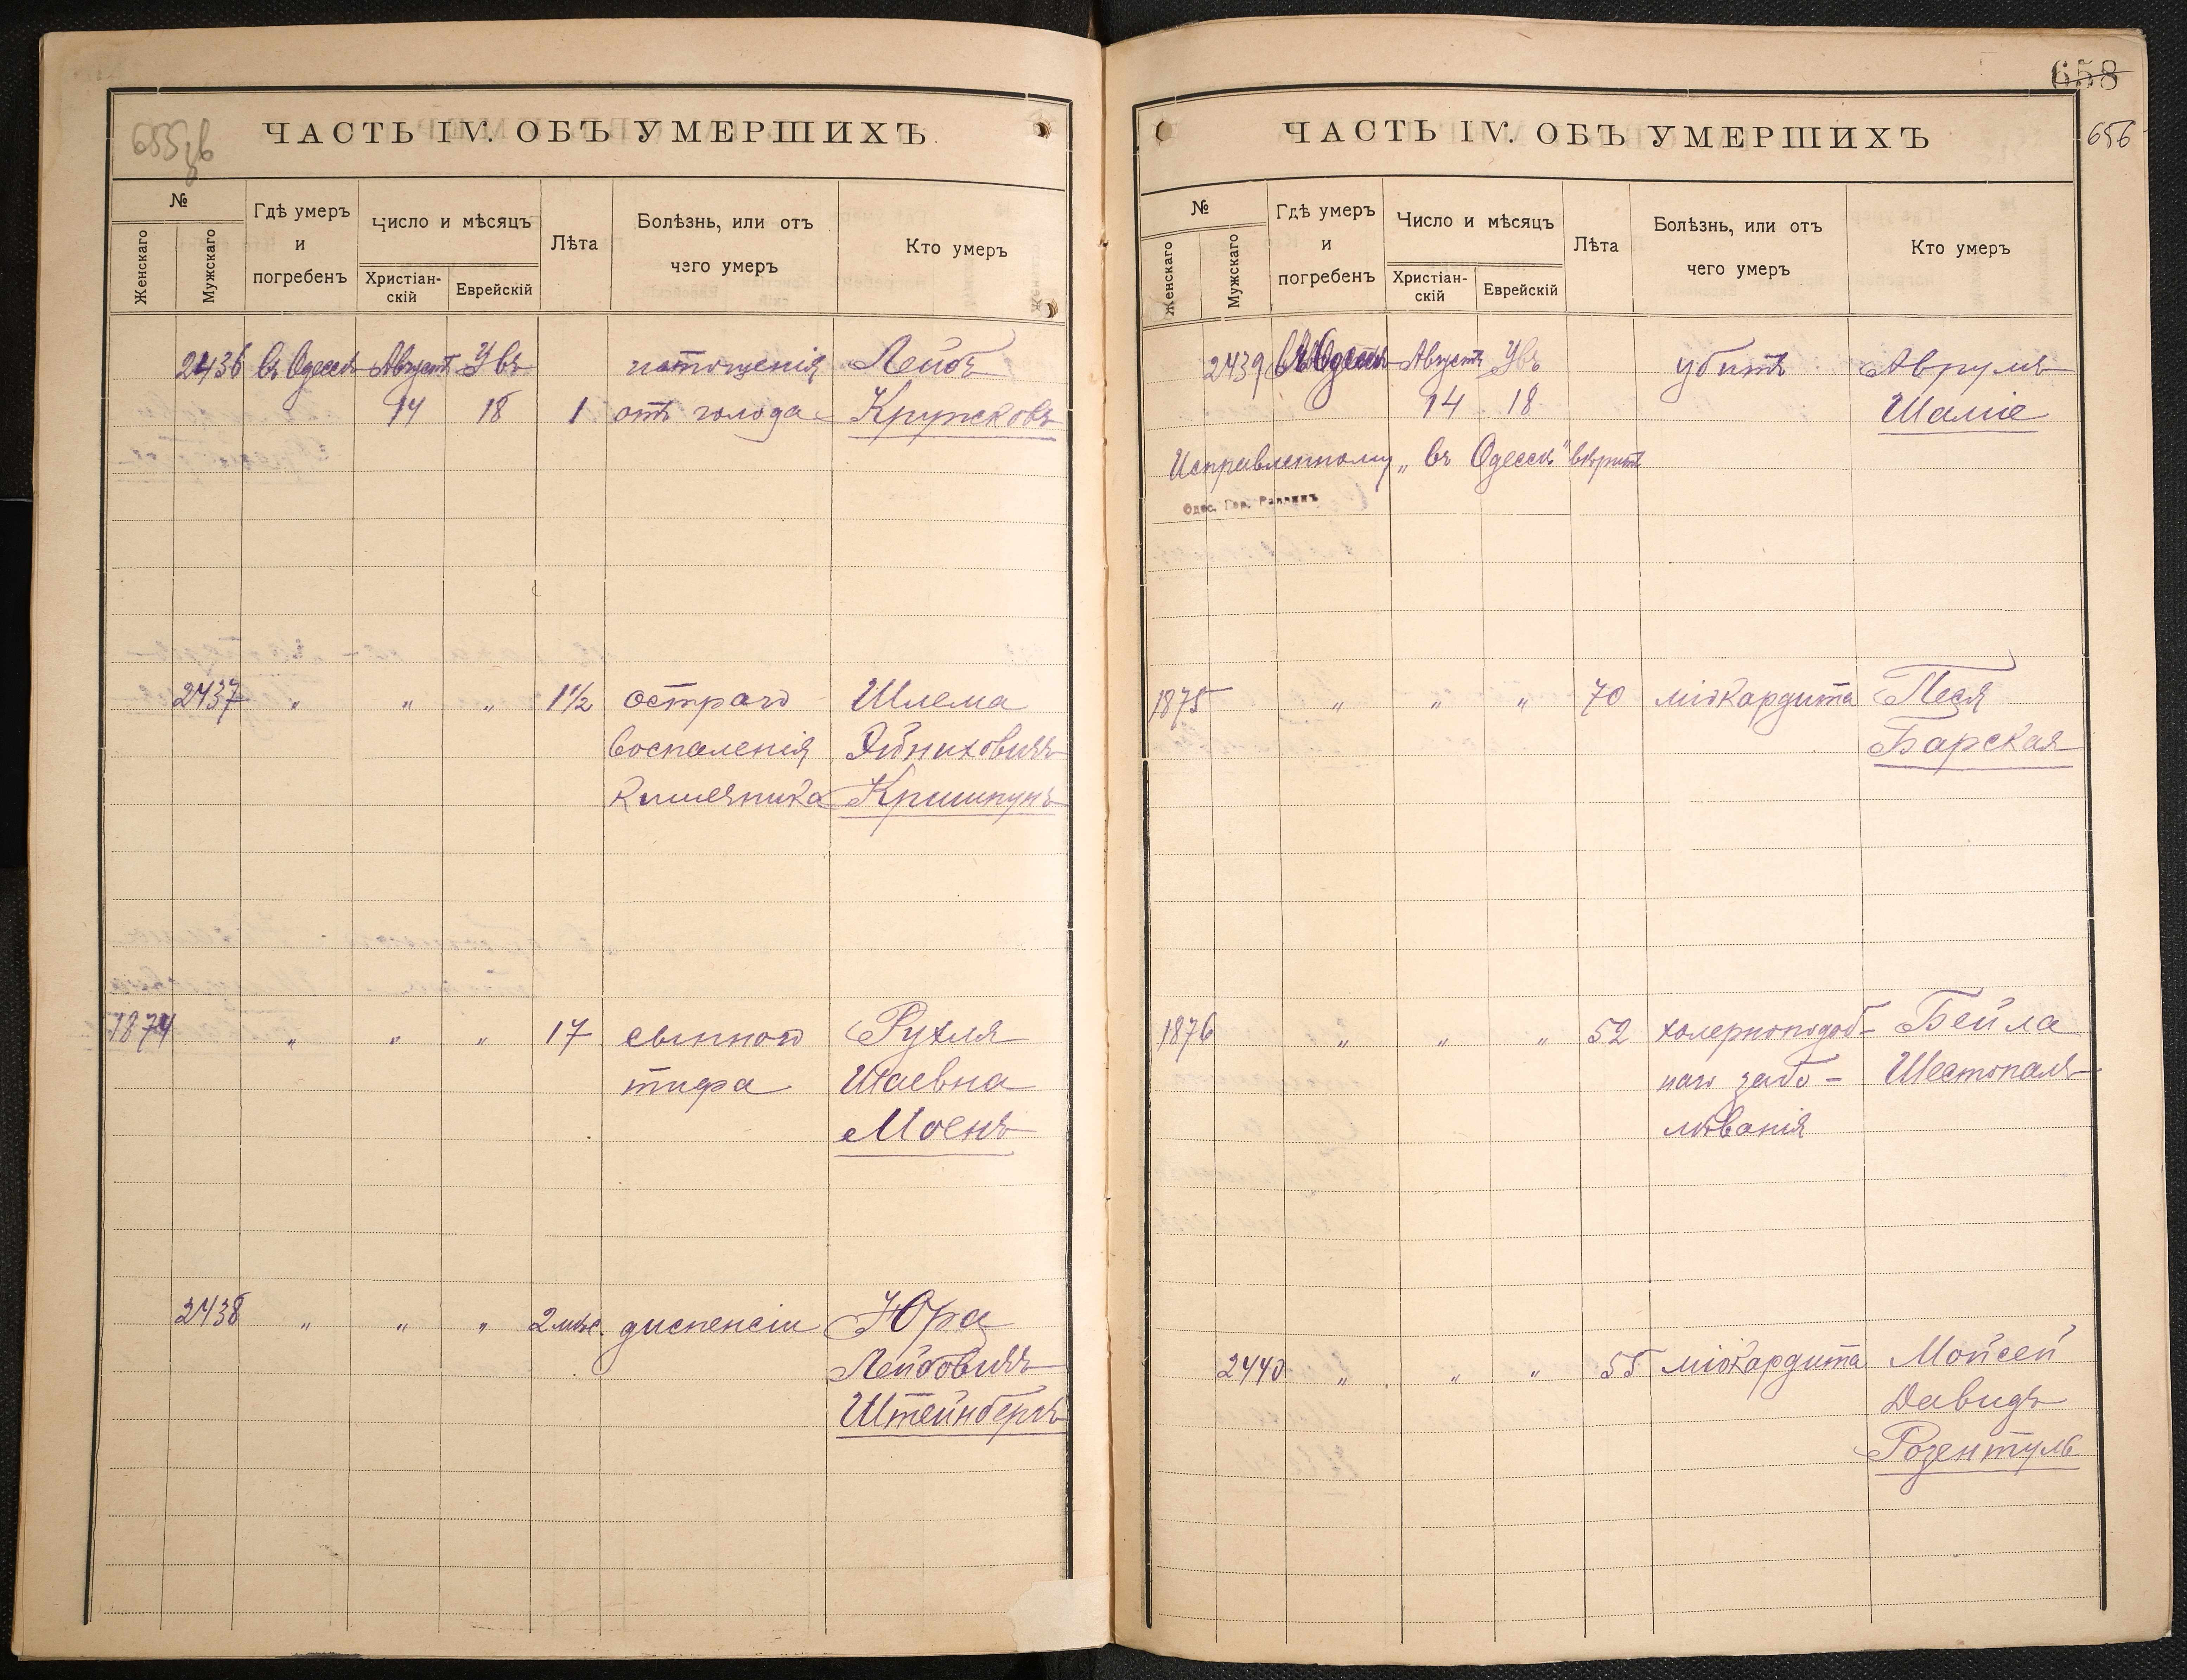 655 об
ЧАСТЬ IV. ОБЪ УМЕРШИХЪ.
№
Женскаго
Мужскаго
Гдѣ умеръ и погребенъ
Число и мѣсяцъ
Христіан-скій
Еврейскій
Лѣта
Болѣзнь, или отъ чего умеръ
Кто умеръ
2436 въ Одессѣ Августъ Увъ истощенія Лейбъ
14 18 1 отъ голода Кружковъ
2437 " " " 1½ остраго Шлема
воспаленія Эйниховичъ
кишечника Кришпунъ
1874 " " " 17 сыпного Рухля
тифа Шаевна
Моенъ
2438 " " " 2 мѣс. диспепсіи Юра
Лейбовичъ
Штейнбергъ
658
656
ЧАСТЬ IV. ОБЪ УМЕРШИХЪ
№
Женскаго
Мужскаго
Гдѣ умеръ и погребенъ
Число и мѣсяцъ
Христіан-скій
Еврейскій
Лѣта
Болѣзнь, или отъ чего умеръ
Кто умеръ
2439 въ Одессѣ Августъ Увъ убитъ Аврумъ
14 18 Шаміе
Исправленному „въ Одессѣ" вѣрить
Одес. Гор. Раввинъ
1875 " " " 70 міокардита Песя
Барская
1876 " " " 52 холерноподоб- Бейла
наго забо- Шестопалъ
лѣванія
2440 " " " 55 міокардита Мойсей
Давидъ
Розентуль